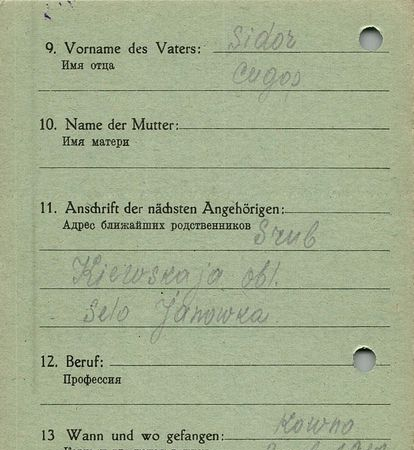 9. Vorname des Vaters: Sidor
Имя отца Сидор
10. Name der Mutter:
Имя матери
11. Anschrift der nächsten Angehörigen:
Адрес ближайших родственников
Kiewskaja obl.
Selo Janowka
12. Beruf:
Профессия
13 Wann und wo gefangen: Kowno